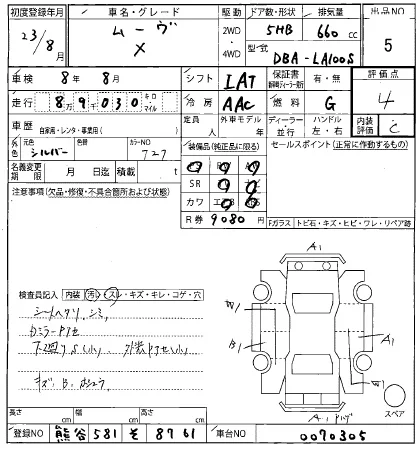 初度登録年月 車名・グレード 駆動 ドア数・形状 排気量 出品NO
23/8月 ムーヴ X 2WD・4WD 5HB 660cc 5
型式 DBA-LA100S
車検 8年8月 シフト IAT 保証書 有・無 評価点
走行 89030 キロ・マイル 冷房 AAC 燃料 G 4
車歴 自家用・レンタ・事業用( ) 定員 人 外車モデル 年 ディーラー 並行 ハンドル 左・右 内装評価 C
外色 元色 シルバー 色替 カラーNO 727 装備品(純正品に限る) セールスポイント(正常に作動するもの)
名義変更期限 月 日迄 積載 t
注意事項(欠品・修復・不具合箇所および状態) SR
カワ エアB
R券 9080 円 Fガラス トビ石・キズ・ヒビ・ワレ・リペア跡
A1
検査員記入 内装 汚・スレ・キズ・キレ・コゲ・穴
シートヘタリ、シミ
カミラーP7セ
下廻りS(小) 外装P7セ(小)
キズ、B、
W1
B1
A1
W1
スペア
長さ cm 幅 cm 高さ cm
登録NO 熊谷 581 そ 8761 車台NO 0070305